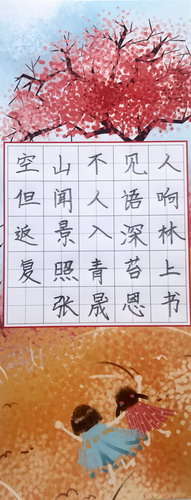 空山不见人
但闻人语响
返景入深林
复照青苔上
张晟恩书